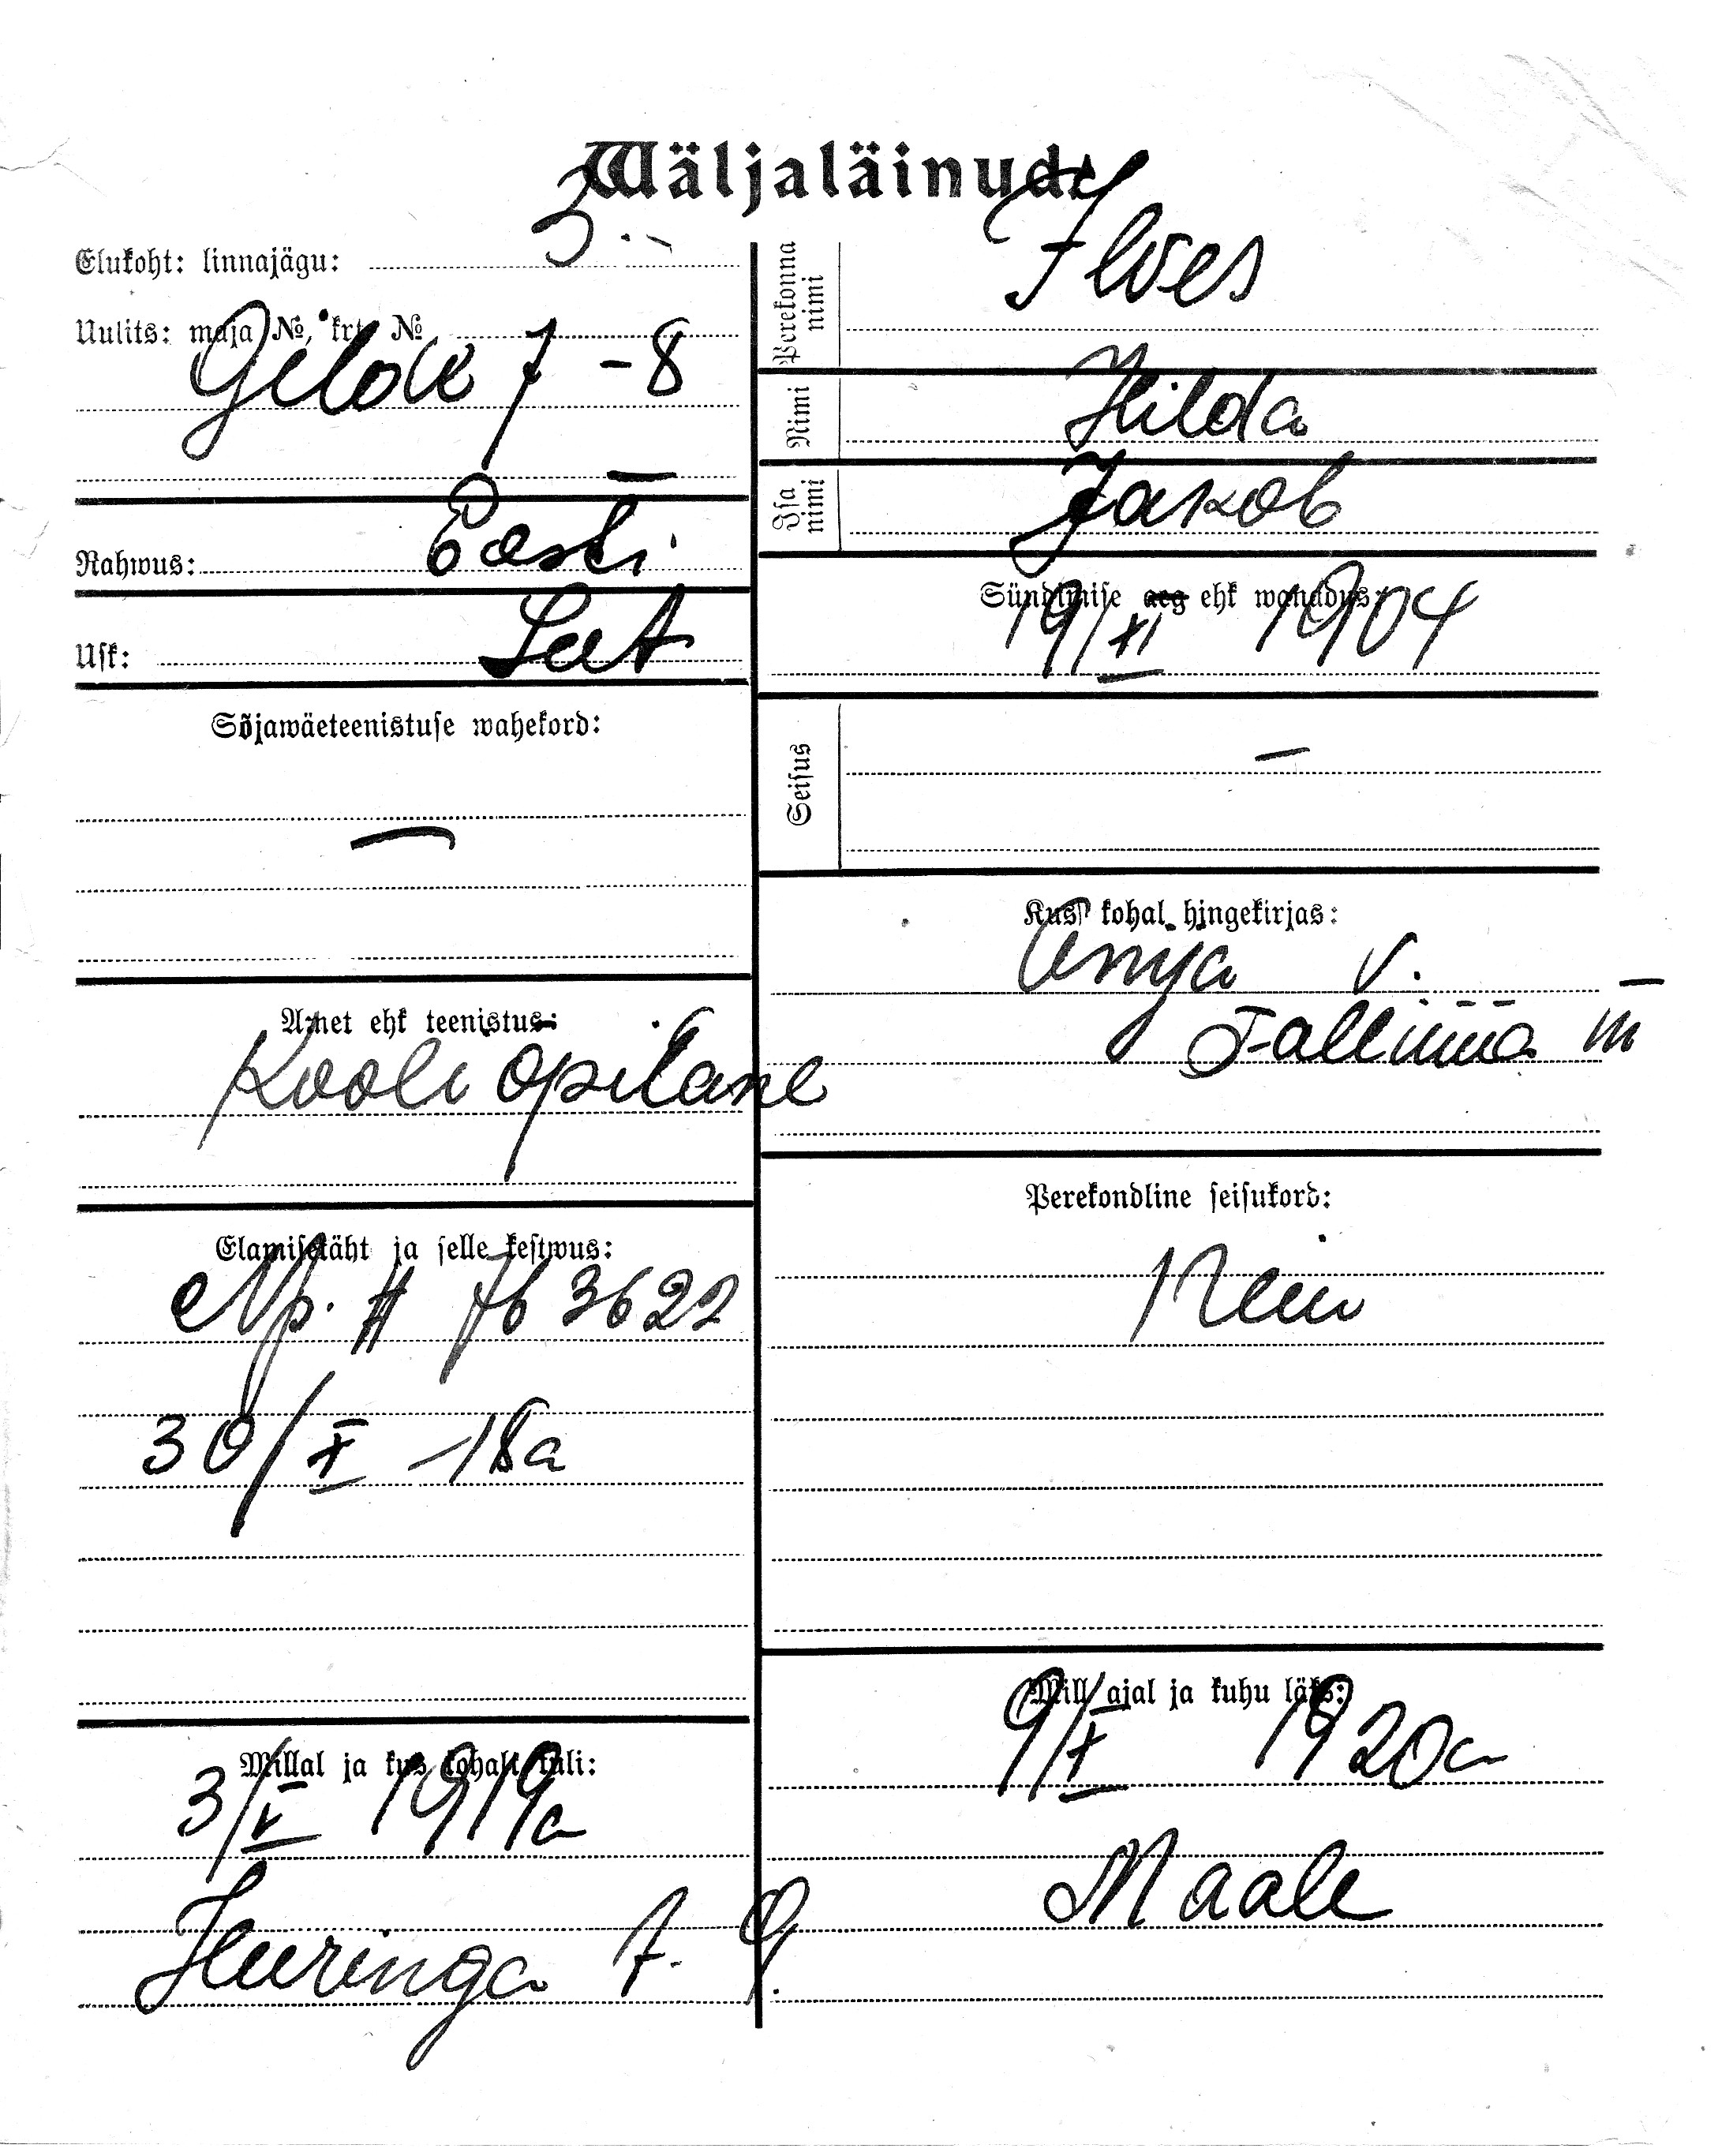 Wäljaläinud.
Elukoht: linnajägu: 3.
Uulits: maja №, krt. №
Gildi 7 - 8
Rahwus: Eesti
Usk: Lut
Sõjawäeteenistuse wahekord:
—
Amet ehk teenistus:
Kooli õpilane
Elamisetäht ja selle kestwus:
Np. A 76 3622
30/X - 18a
Millal ja kus kohalt tuli:
3/V 1919a
Heeringa t. 9.
Perekonna nimi
Ilves
Nimi Hilda
Isa nimi Jakob
Sündimise aeg ehk wanadus:
19/XI 1904
Seisus —
Kus kohal hingekirjas:
Anija v.
Tallinna m
Perekondline seisukord:
Nein
Mill ajal ja kuhu läks:
9/X 1920a
Maale